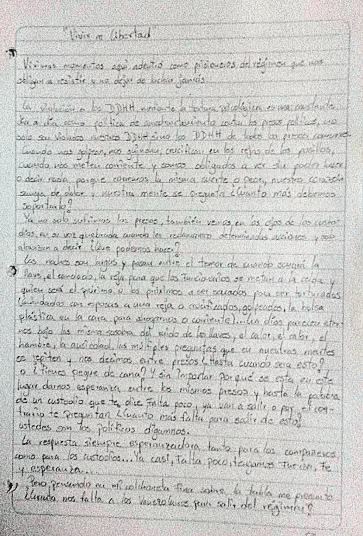 "Vivir en libertad"
Vivimos momentos aquí adentro como prisioneros del régimen que nos
obligan a resistir y no dejar de luchar jamás.
La violación a los DDHH mediante la tortura psicológica es una constante
día a día como política de amedrentamiento contra los presos políticos, no
solo son violados nuestros DDHH sino los DDHH de todos los presos comunes
cuando nos golpean, nos crucifican en las rejas de los pasillos,
cuando nos meten corriente y somos obligados a ver sin poder hacer
o decir nada, porque corremos la misma suerte o peor, nuestro corazón
sangra de dolor y nuestra mente se pregunta ¿Cuánto más debemos
soportarlo?
Ya no solo sufrimos los presos, también vemos en los ojos de los custo-
dios, en su voz quebrada cuando les determinadas acciones y solo
alcanzan a decir ¿Que podemos hacer?
Las noches son largas y pasan entre el temor de cuando sonará la
llave, el candado, la reja para que los funcionarios se metan a la celda y
quien será el próximo o los próximos a ser sacados para ser torturados
(colgados con esposas a una reja o crucificados, golpeados, la bolsa
plástica en la cara para ahogarnos o corriente)... Los días parecen eter-
nos bajo la misma zozobra del ruido de las llaves, el calor, el olor, el
hambre, la suciedad, las múltiples preguntas que en nuestras mentes
se repiten y nos decimos entre presos ¿Hasta cuando será esto?
o ¿Tienes pegue de cana? y sin importar porqué se está en este
lugar darnos esperanza entre los mismos presos y hasta la palabra
de un custodio que te dice falta poco, ya van a salir o por el con-
trario te preguntan ¿Cuánto más falta para salir de esto?
ustedes son los políticos dígannos.
La respuesta siempre esperanzadora tanto para los compañeros
como para los custodios... Ya casi, falta poco, tengamos fuerza, fe
y esperanza...
Pero, pensando en mi colchoneta fina sobre la tabla me pregunto
¿Cuánto nos falta a los venezolanos para salir del régimen?